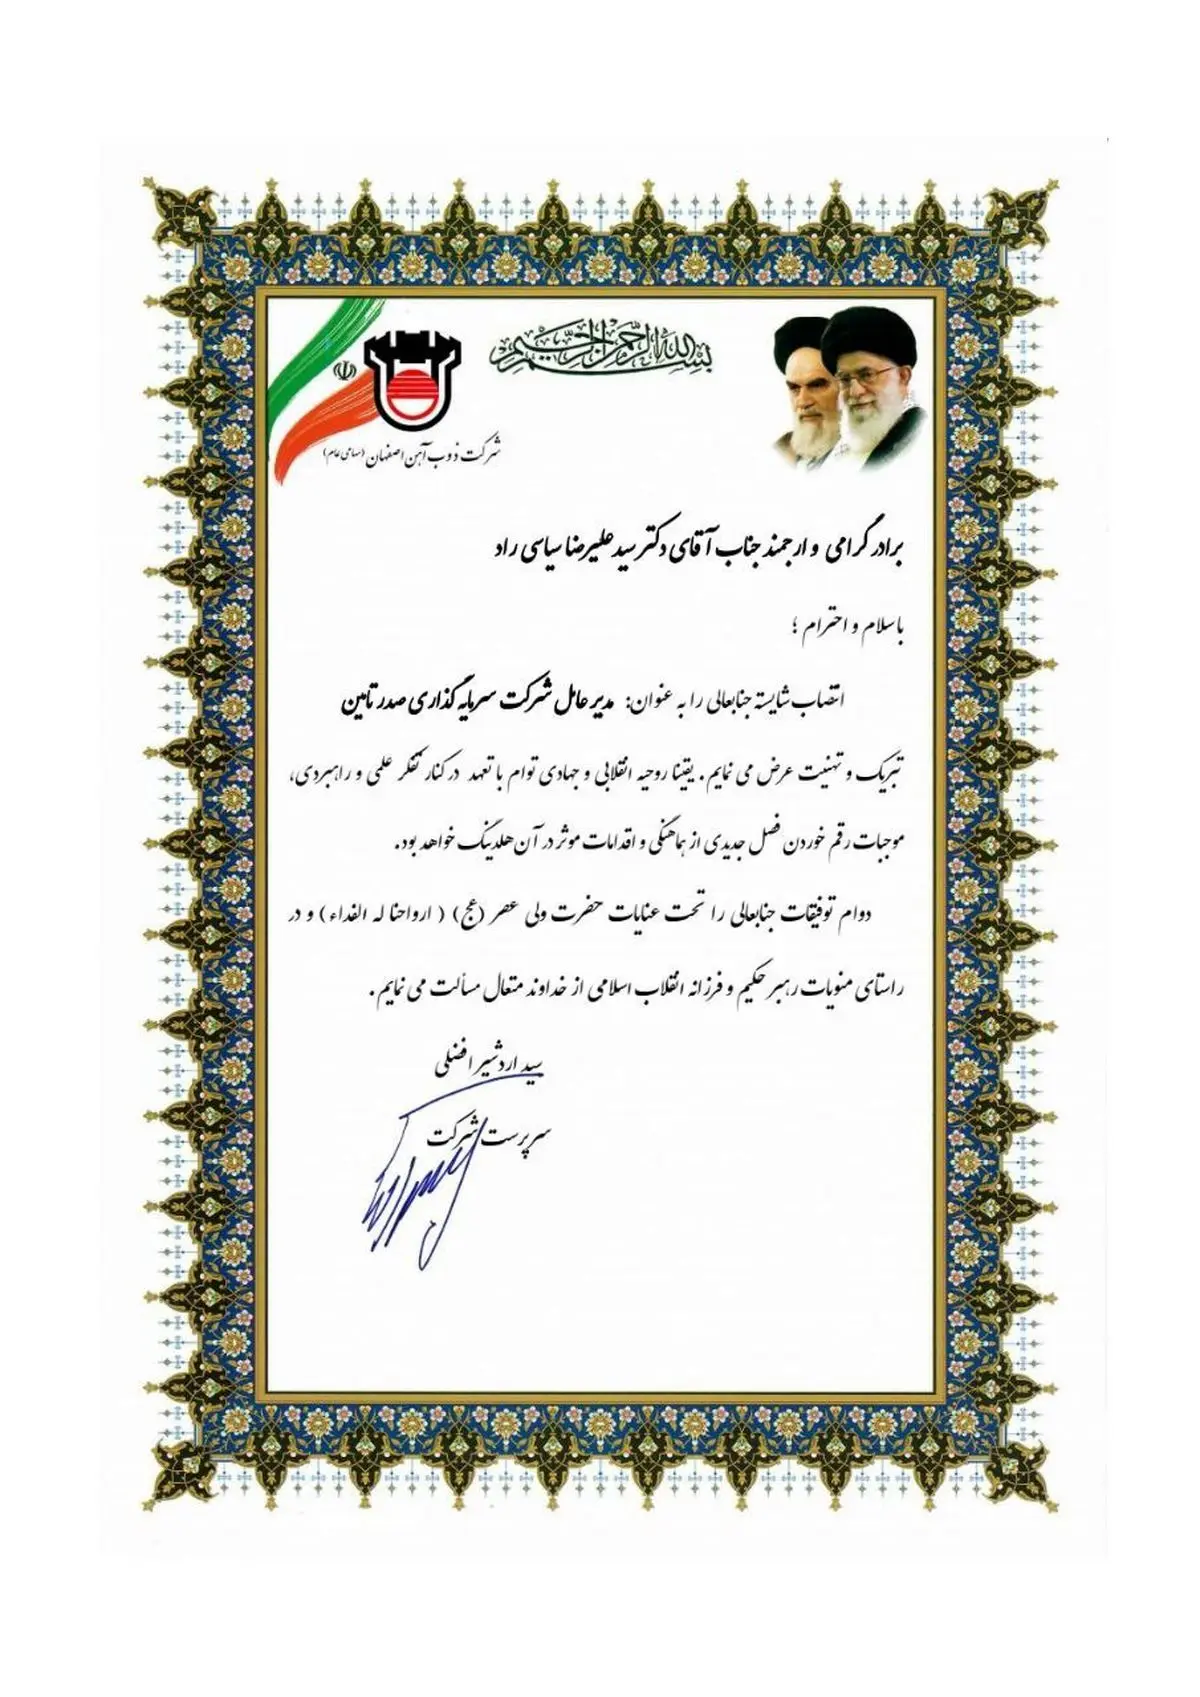 بسم الله الرحمن الرحیم
شرکت ذوب آهن اصفهان (سهامی عام)
برادر گرامی و ارجمند جناب آقای دکتر سید علیرضا سیاسی راد
با سلام و احترام ؛
انتصاب شایسته جنابعالی را به عنوان: مدیر عامل شرکت سرمایه گذاری صدر تامین
تبریک و تهنیت عرض می نمایم. یقینا روحیه انقلابی و جهادی توام با تعهد در کنار تفکر علمی و راهبردی،
موجبات رقم خوردن فصل جدیدی از هماهنگی و اقدامات موثر در آن هلدینگ خواهد بود.
دوام توفیقات جنابعالی را تحت عنایات حضرت ولی عصر (عج) ( ارواحنا له الفداء ) و در
راستای منویات رهبر حکیم و فرزانه انقلاب اسلامی از خداوند متعال مسألت می نمایم.
سید اردشیر افضلی
سرپرست شرکت